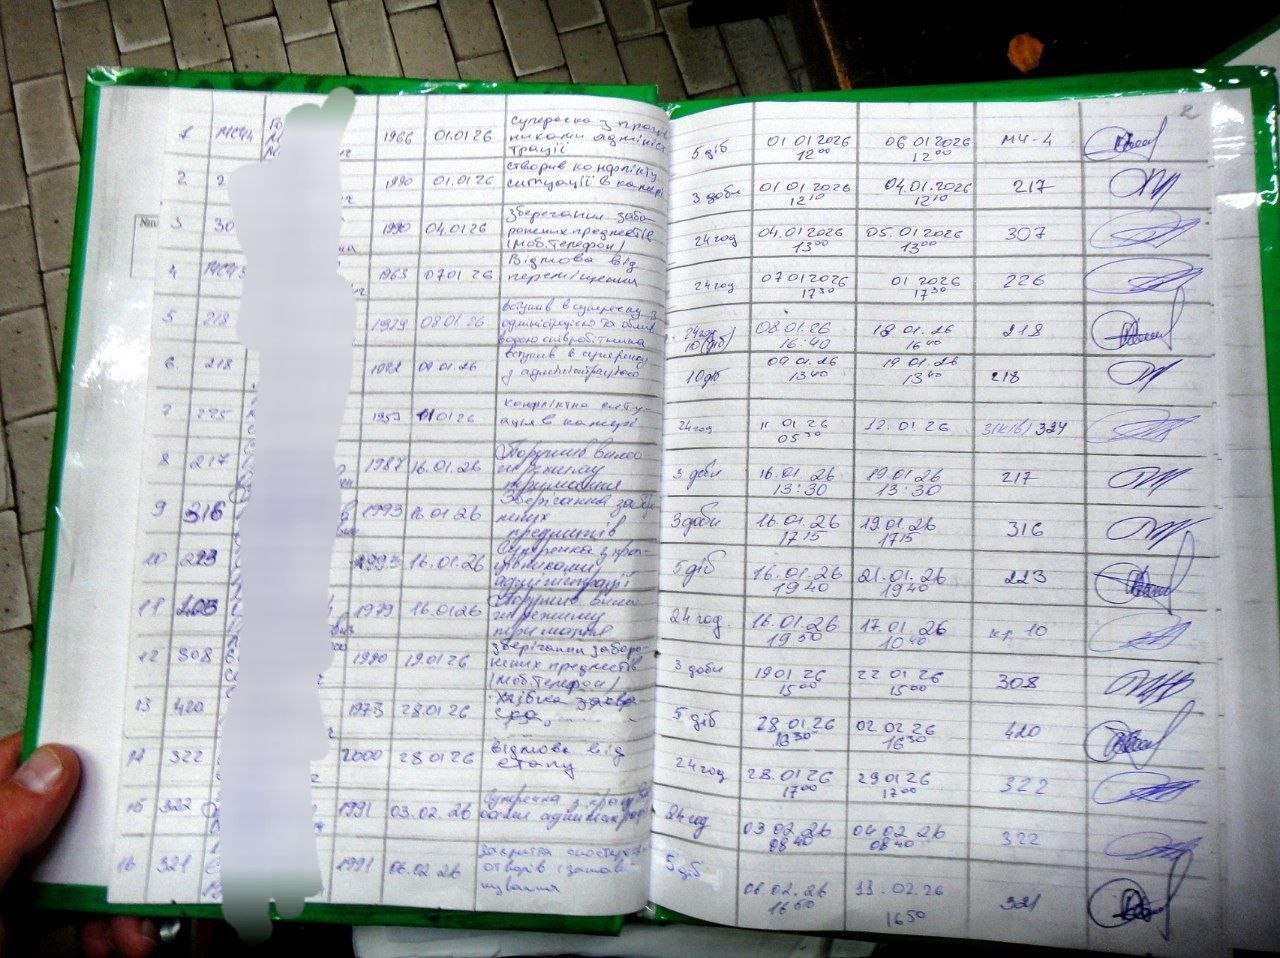 1 МСЧ 1966 01.01.26 суперечка з праців никами адмініс трації 5 діб 01 01 2026 12 00 06 01 2026 12 00 МЧ-4
2
2 2 1990 01.01.26 створив конфлікту ситуації в камері 3 доби 01 01 2026 12 10 04.01.2026 12 10 217
№п
3 30 1990 04.01.26 зберігання забо- ронених предметів (моб.телефон) 24 год 04.01.2026 13 00 05.01 2026 13 00 307
4 МСЧ 1963 07.01 26 Відмова від переміщення 24 год 07 01 2026 17 30 01 2026 17 30 226
5 218 1979 08.01 26 вступив в суперечку з адміністрацією та облив водою співробітника 24 год 10 (діб) 08.01.26 16:40 18 01.26 16 40 218
6. 218 09 01.26 вступив в суперечку з адміністрацією 10 діб 09 01.26 13 40 19 01.26 13 40 218
7 225 1953 11 01 26 конфліктна ситу- ація в камері 24 год 11 01 26 05 30 12.01 26 324
8 217 1987 16.01.26 Порушив вимо ги режиму тримання 3 доби 16.01 26 13:30 19 01.26 13:30 217
9 316 1993 16 01 26 Зберігання забор предметів 3 доби 16.01.26 17 15 19.01.26 17 15 316
10 223 1993 16.01.26 Суперечка з пра- цівниками адміністрації 5 діб 16.01.26 19 40 21.01.26 19 40 223
11 203 1979 16.01.26 Порушив вимо ги режиму тримання 24 год. 16.01.26 19 50 17.01.26 10 40 10
12 308 1990 19.01 26 зберігання заборо- нених предметів (моб.телефон) 3 доби 19 01 26 15 00 22 01 26 15 00 308
13 420 1973 28.01 26 5 діб 28 01 26 16 30 02 02 26 16 30 420
14 322 2000 28 01 26 відмова від етапу 24 год 28.01 26 17 00 29 01 26 17 00 322
15 322 1991 03.02.26 Суперечка з 24 год 03 02 26 08 40 04 02 26 08 40 322
16 321 1991 06.02 26 закриття отворів 5 діб 06 02.26 16 50 11.02 26 16 50 321